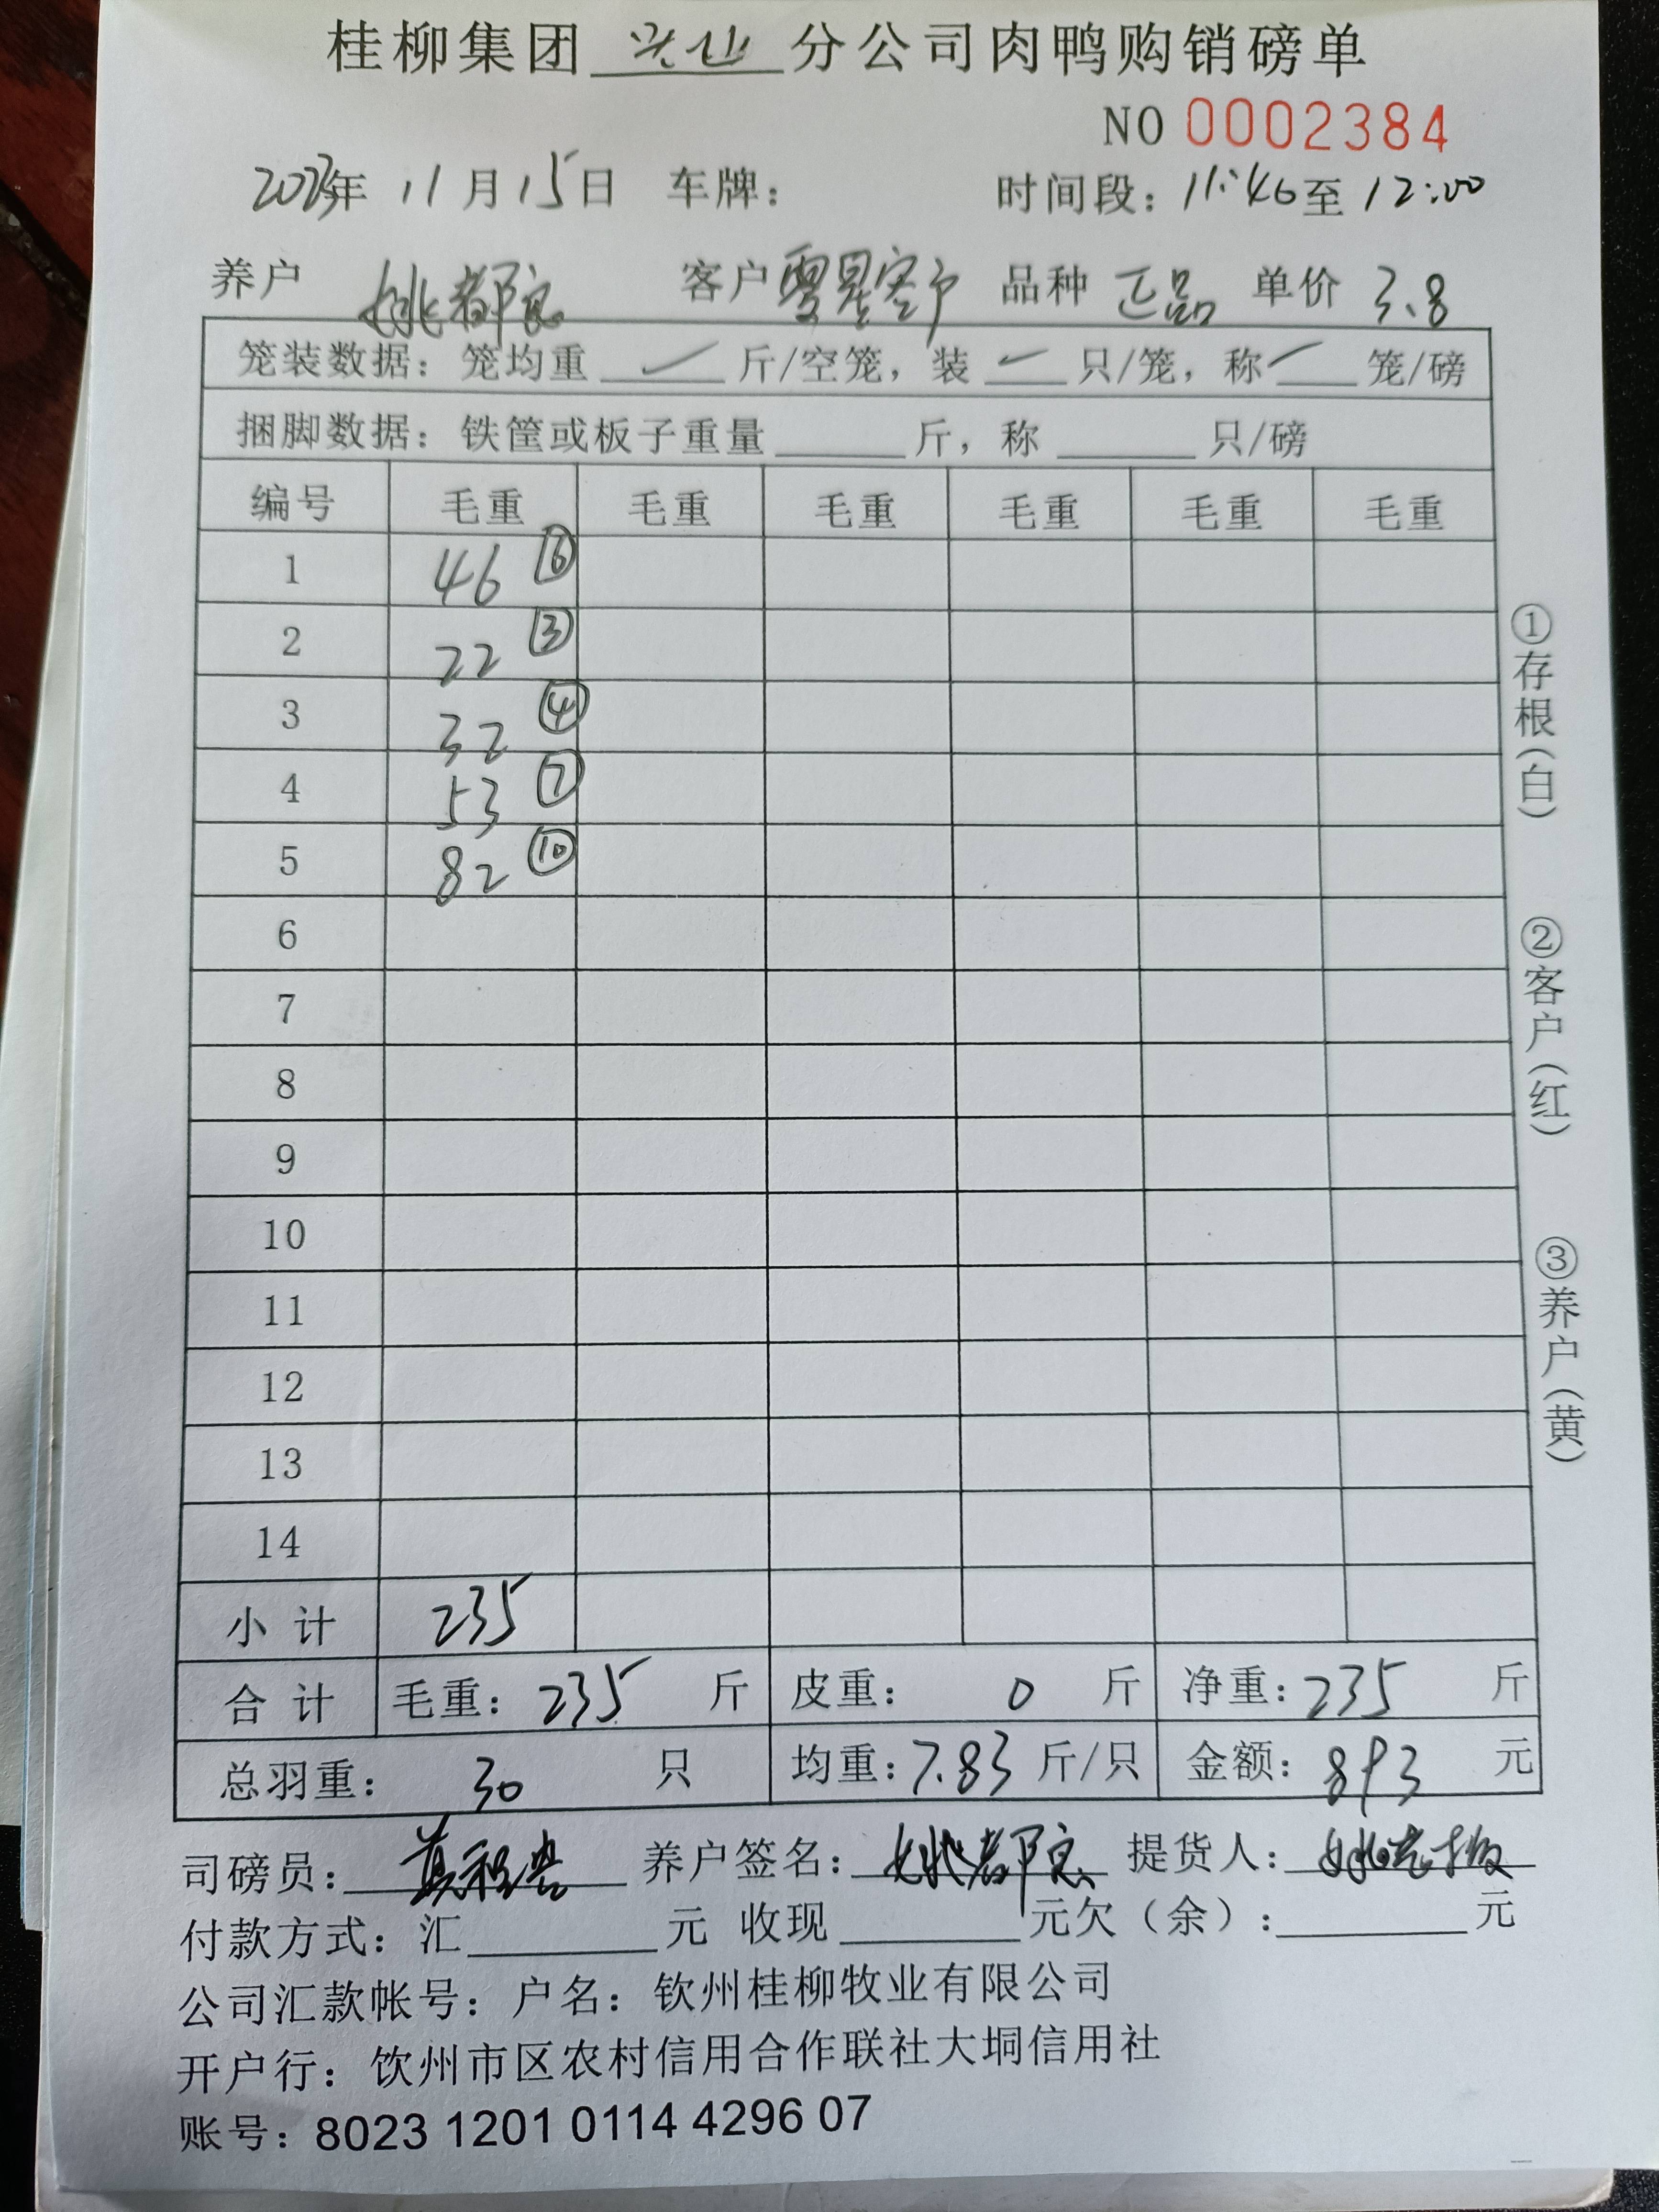 桂柳集团 兴业 分公司肉鸭购销磅单
NO 0002384
2023年 11月15日 车牌： 时间段：11:46至12:00
养户 姚都良 客户 零星客户 品种 正品 单价 3.8
笼装数据：笼均重 斤/空笼，装 只/笼，称 笼/磅
捆脚数据：铁筐或板子重量 斤，称 只/磅
编号 毛重 毛重 毛重 毛重 毛重 毛重
1 46 ⑥
2 22 ③
3 32 ④
4 53 ⑦
5 82 ⑩
6
7
8
9
10
11
12
13
14
小计 235
合计 毛重：235 斤 皮重：0 斤 净重：235 斤
总羽重：30 只 均重：7.83 斤/只 金额：893 元
司磅员： 养户签名：姚都良 提货人：姚老板
付款方式：汇 元 收现 元欠（余）： 元
公司汇款帐号：户名：钦州桂柳牧业有限公司
开户行：饮州市区农村信用合作联社大垌信用社
账号：8023 1201 0114 4296 07
①存根（白）
②客户（红）
③养户（黄）